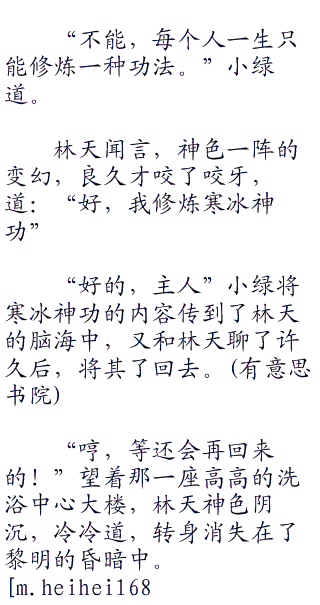 “不能，每个人一生只
能修炼一种功法。”小绿
道。
林天闻言，神色一阵的
变幻，良久才咬了咬牙，
道：“好，我修炼寒冰神
功”
“好的，主人”小绿将
寒冰神功的内容传到了林天
的脑海中，又和林天聊了许
久后，将其了回去。(有意思
书院)
“哼，等还会再回来
的！”望着那一座高高的洗
浴中心大楼，林天神色阴
沉，冷冷道，转身消失在了
黎明的昏暗中。
[m.heihei168